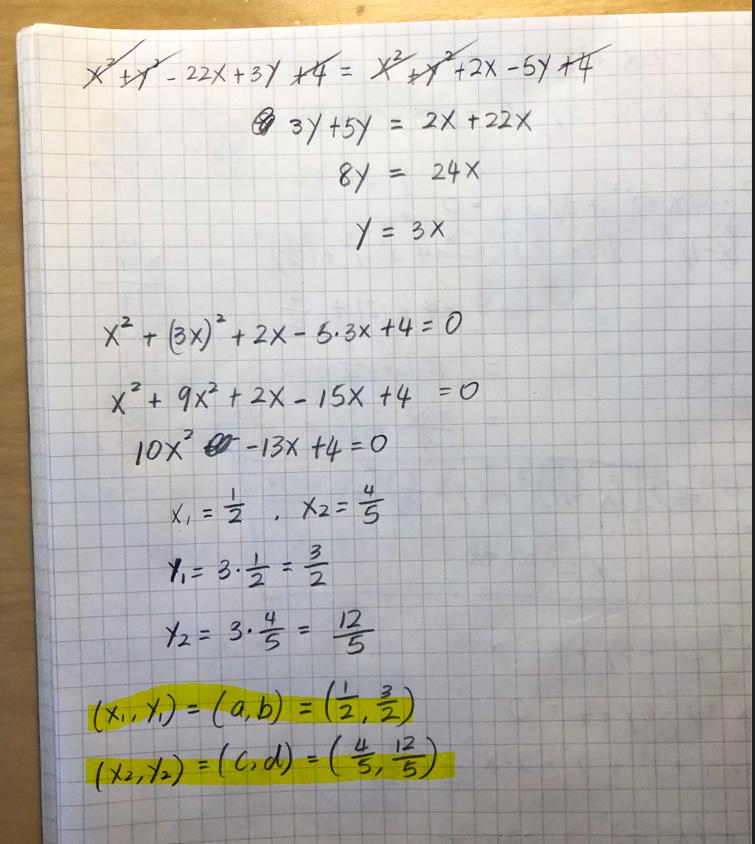 x² + y² - 22x + 3y + 4 = x² + y² + 2x - 5y + 4
3y + 5y = 2x + 22x
8y = 24x
y = 3x
x² + (3x)² + 2x - 5·3x + 4 = 0
x² + 9x² + 2x - 15x + 4 = 0
10x² - 13x + 4 = 0
x₁ = 1/2 , x₂ = 4/5
y₁ = 3·1/2 = 3/2
y₂ = 3·4/5 = 12/5
(x₁, y₁) = (a, b) = (1/2, 3/2)
(x₂, y₂) = (c, d) = (4/5, 12/5)